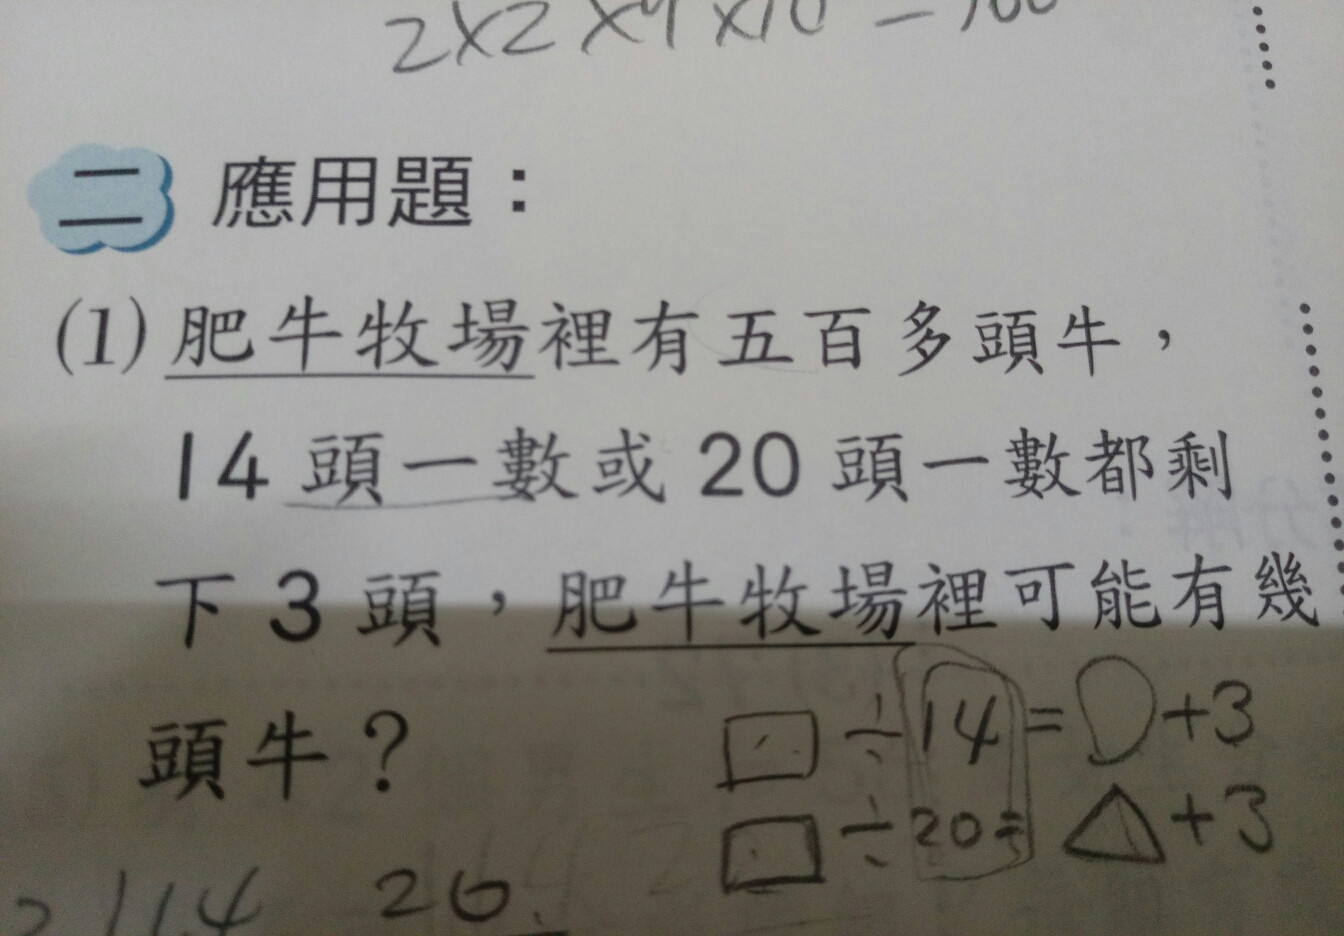 2×2×4×10=160
二 應用題：
(1) 肥牛牧場裡有五百多頭牛，
14 頭一數或 20 頭一數都剩
下 3 頭，肥牛牧場裡可能有幾
頭牛？
□÷14=○+3
□÷20=△+3
2 14 20